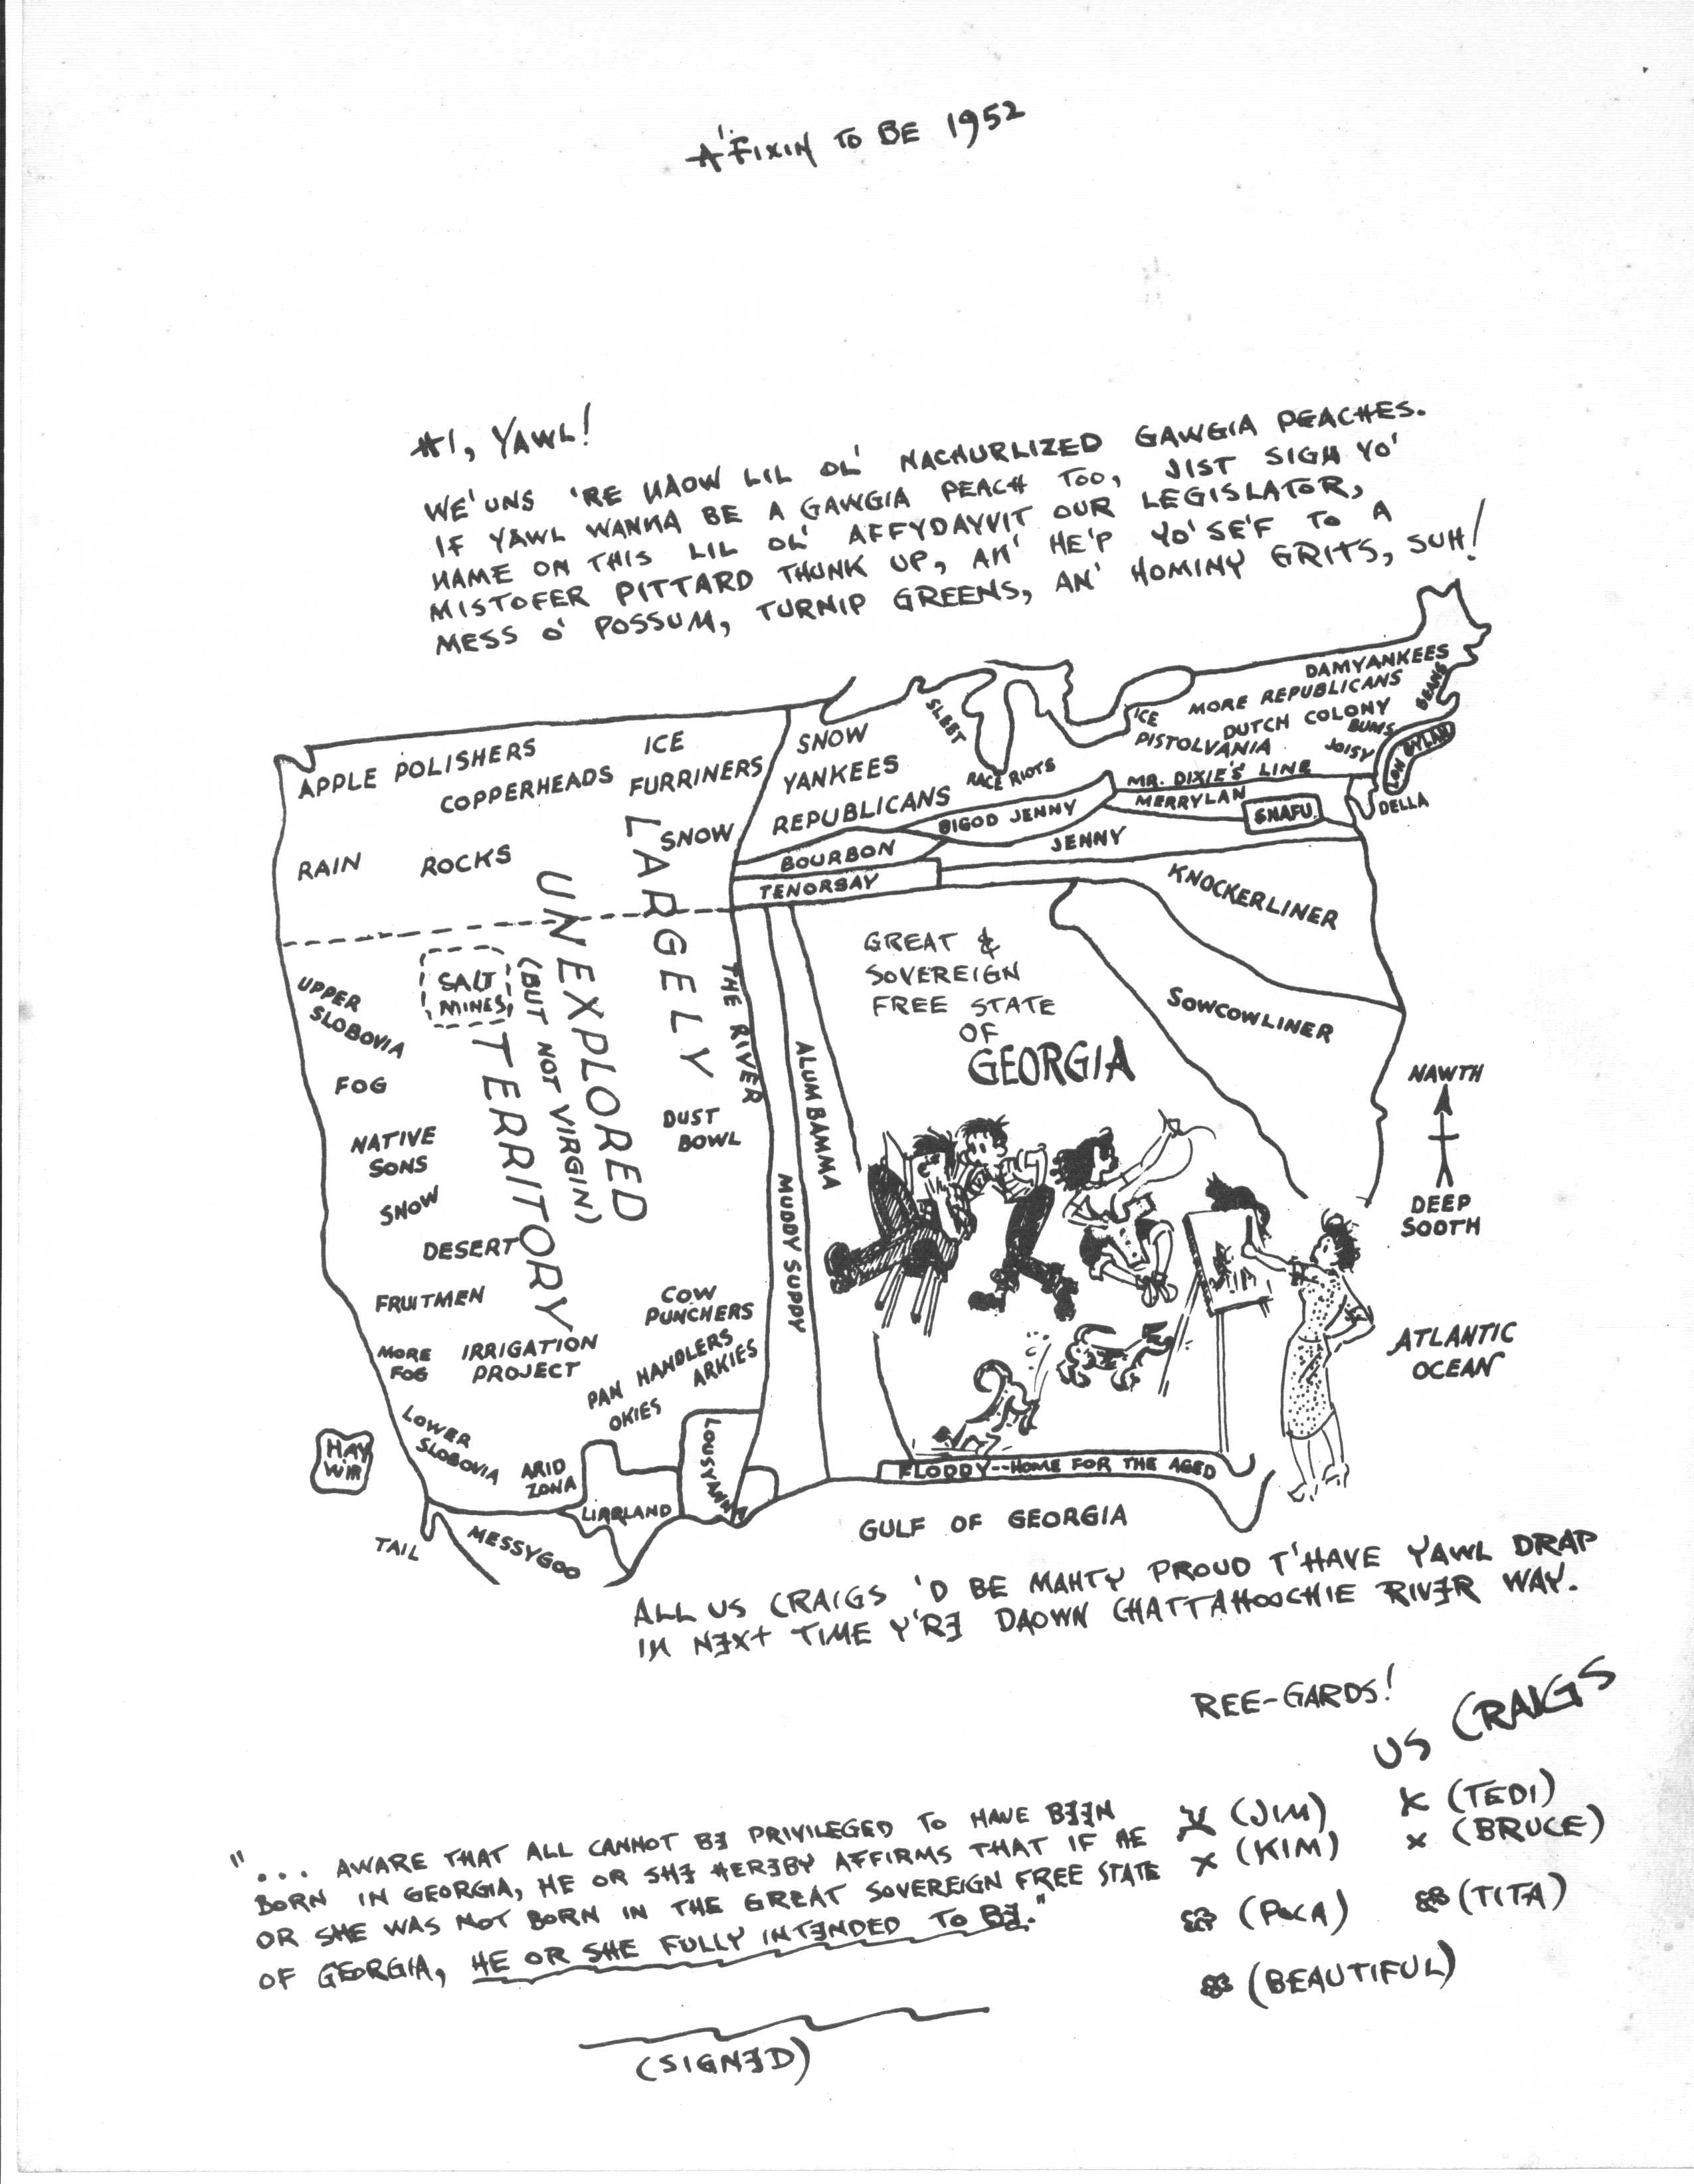 A'FIXIN TO BE 1952
HI, YAWL!
WE'UNS 'RE NAOW LIL OL' NACHURLIZED GAWGIA PEACHES.
IF YAWL WANNA BE A GAWGIA PEACH TOO, JIST SIGN YO'
NAME ON THIS LIL OL' AFFYDAYVIT OUR LEGISLATOR,
MISTOFER PITTARD THUNK UP, AN' HE'P YO'SE'F TO A
MESS O' POSSUM, TURNIP GREENS, AN' HOMINY GRITS, SUH!
DAMYANKEES
MORE REPUBLICANS
BEANS
DUTCH COLONY
BUMS
ICE
PISTOLVANIA
JOISY
LON GYLAN
SLEET
RACE RIOTS
MR. DIXIE'S LINE
MERRYLAN
SNAFU.
DELLA
APPLE POLISHERS
ICE
SNOW
COPPERHEADS
FURRINERS
YANKEES
REPUBLICANS
BIGOD JENNY
JENNY
RAIN
ROCKS
SNOW
BOURBON
TENORSAY
KNOCKERLINER
LARGELY
UNEXPLORED
(BUT NOT VIRGIN)
TERRITORY
GREAT &
SOVEREIGN
FREE STATE
OF
GEORGIA
SOWCOWLINER
SALT
MINES
UPPER
SLOBOVIA
THE RIVER
ALUMBAMMA
MUDDY SUPPY
FOG
DUST
BOWL
NATIVE
SONS
SNOW
DESERT
FRUITMEN
COW
PUNCHERS
MORE
FOG
IRRIGATION
PROJECT
PAN HANDLERS
ARKIES
OKIES
LOWER
SLOBOVIA
ARID
ZONA
LOUSYANNA
HAY
WIR
LIARLAND
TAIL
MESSYGOO
FLODDY--HOME FOR THE AGED
GULF OF GEORGIA
NAWTH
DEEP
SOOTH
ATLANTIC
OCEAN
ALL US CRAIGS 'D BE MAHTY PROUD T'HAVE YAWL DRAP
IN NEXT TIME Y'RE DAOWN CHATTAHOOCHIE RIVER WAY.
REE-GARDS!
US CRAIGS
X (JIM) X (TEDI)
X (KIM) X (BRUCE)
(TITA)
(BEAUTIFUL)
"... AWARE THAT ALL CANNOT BE PRIVILEGED TO HAVE BEEN
BORN IN GEORGIA, HE OR SHE HEREBY AFFIRMS THAT IF HE
OR SHE WAS NOT BORN IN THE GREAT SOVEREIGN FREE STATE
OF GEORGIA, HE OR SHE FULLY INTENDED TO BE."
(SIGNED)